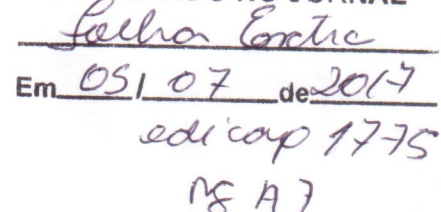 NO JORNAL
Folha Extra
Em 05/07 de 2017
edicao 1775
PG A7